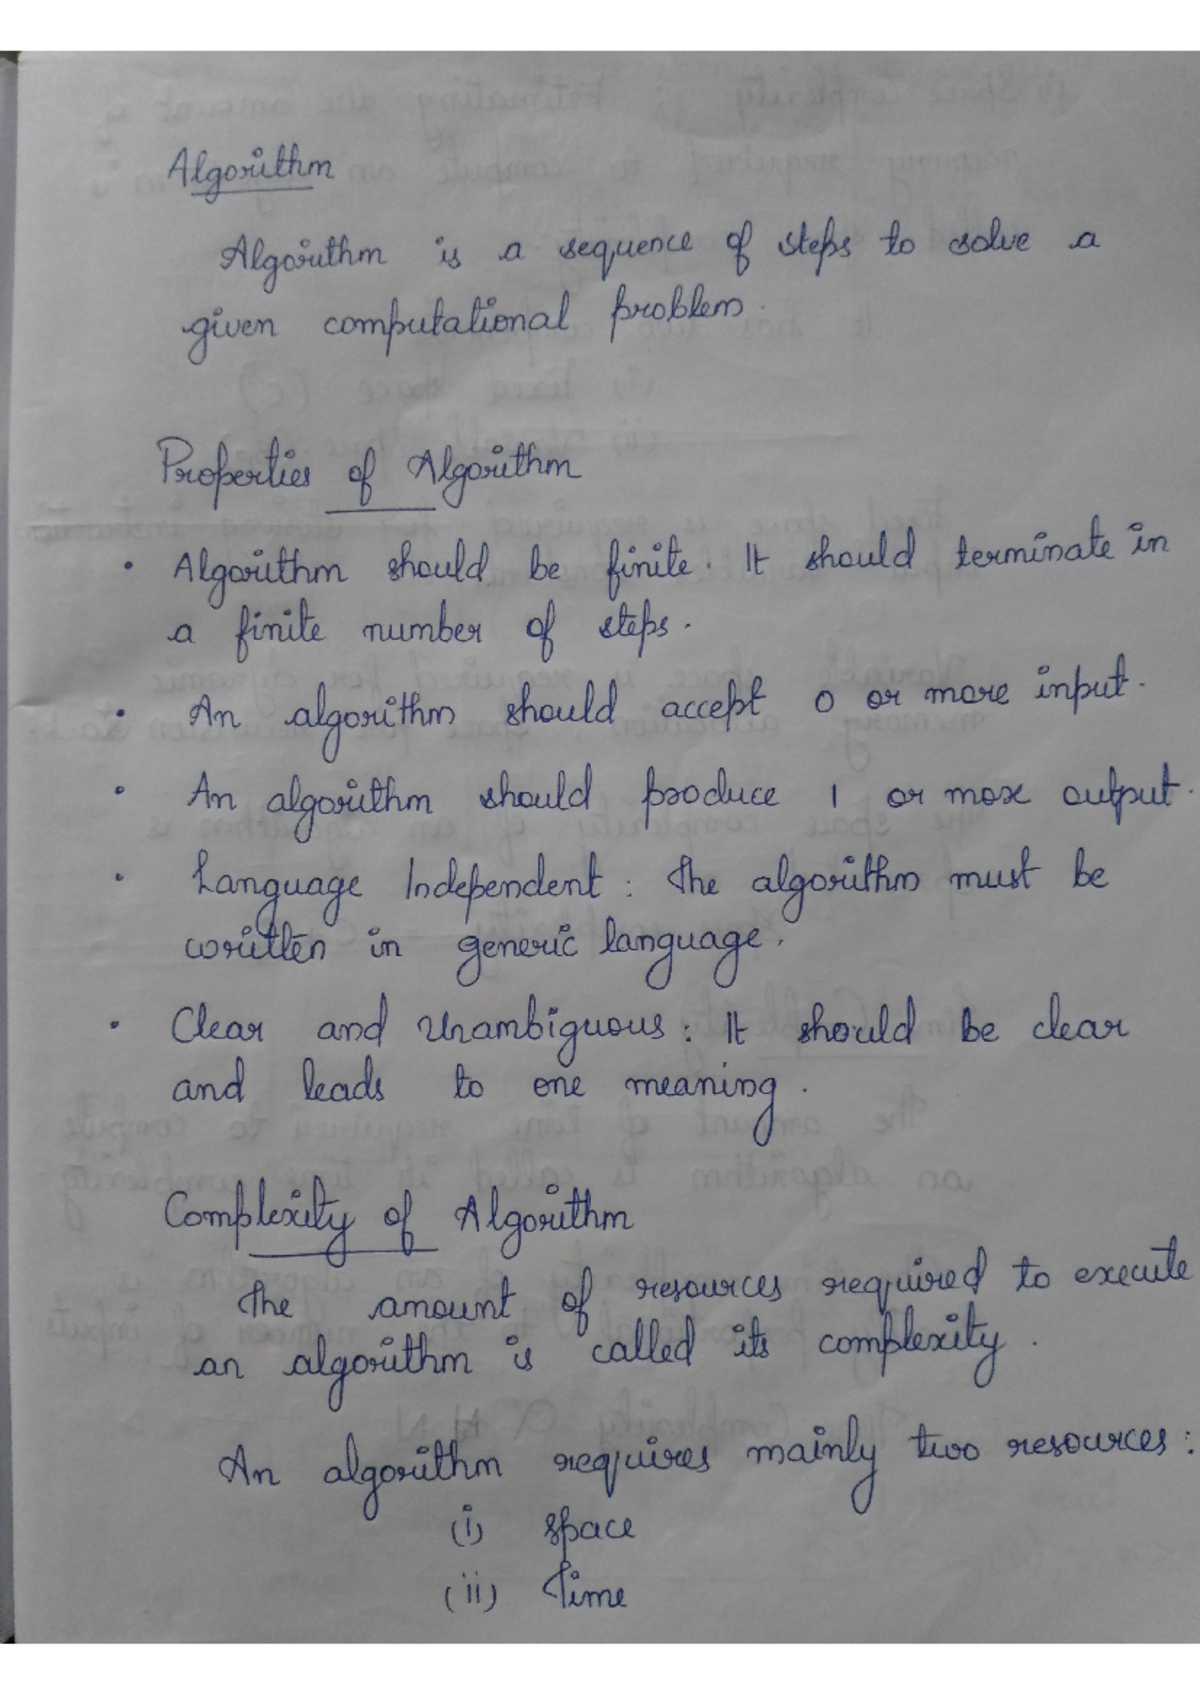 Algorithm
Algorithm is a sequence of steps to solve a
given computational problem.
Properties of Algorithm
• Algorithm should be finite. It should terminate in
a finite number of steps.
• An algorithm should accept 0 or more input.
• An algorithm should produce 1 or more output.
• Language Independent : The algorithm must be
written in generic language.
• Clear and Unambiguous : It should be clear
and leads to one meaning.
Complexity of Algorithm
The amount of resources required to execute
an algorithm is called its complexity.
An algorithm requires mainly two resources :
(i) space
(ii) Time